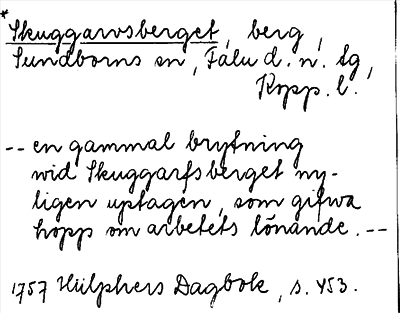 *Skuggarvsberget, berg,
Sundborns sn, Falu d. n. tg,
Kopp. l.
-- en gammal brytning
wid Skuggarfsberget ny-
ligen uptagen, som gifwa
hopp om arbetets lönande. --
1757 Hülphers Dagbok, s. 453.